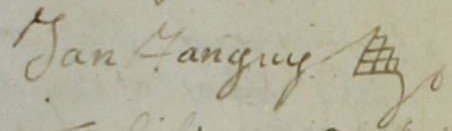 Jan Tanguy